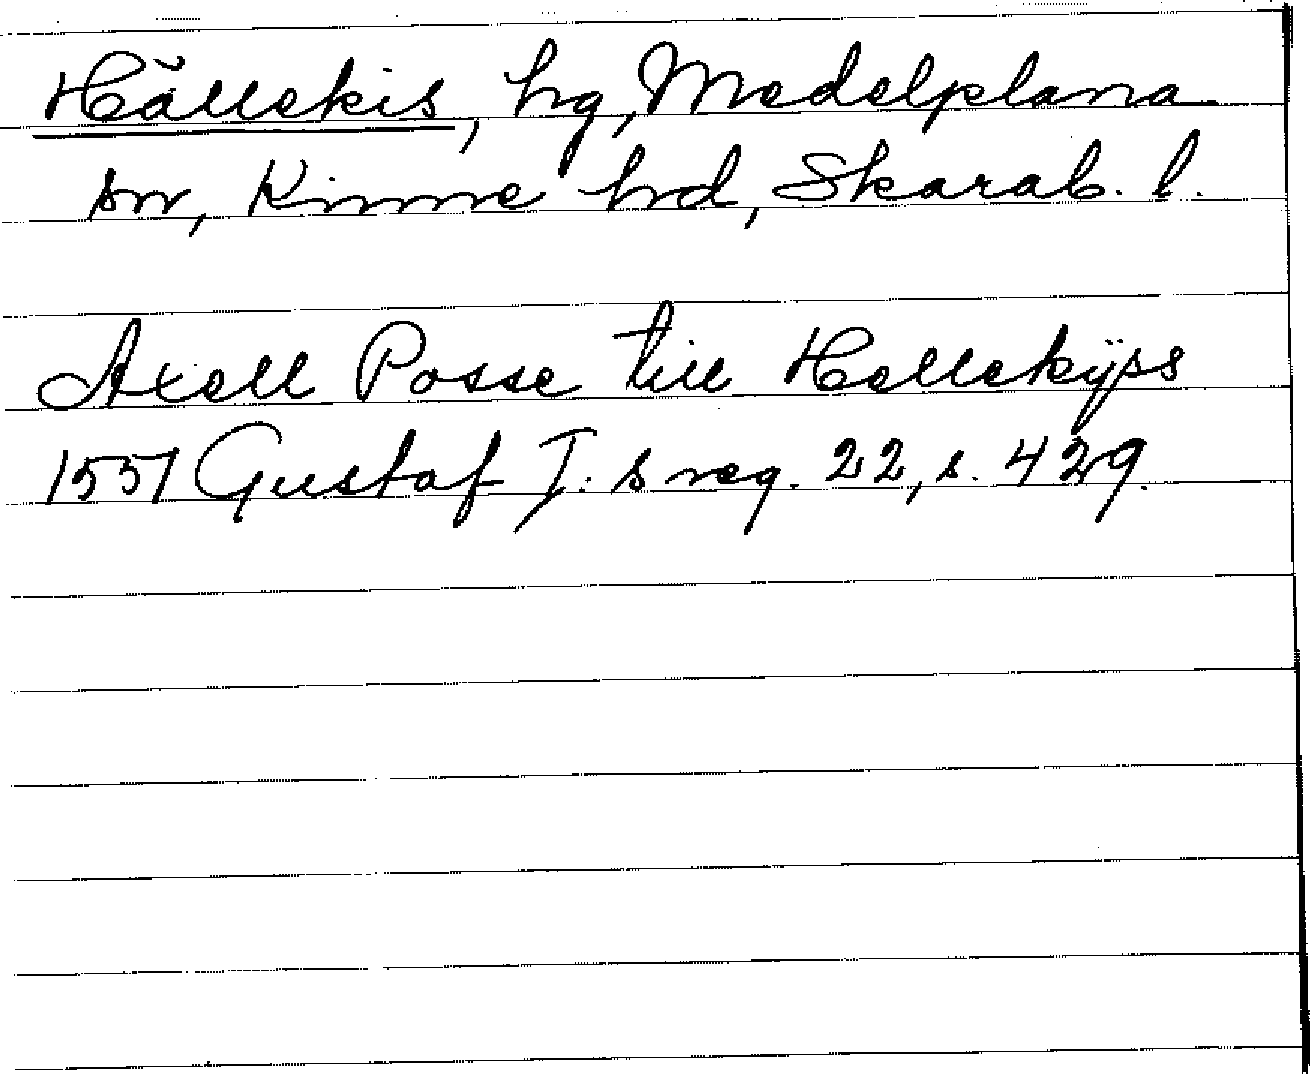 Hällekis, hg, Medelplana
sn, Kinne hd, Skarab. l.
Axell Posse till Hellekÿps
1551 Gustaf I:s reg. 22, s. 429.